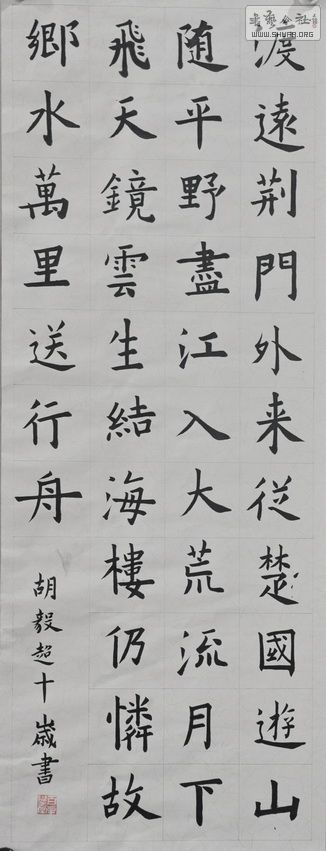 渡遠荊門外来從楚國遊山
随平野盡江入大荒流月下
飛天鏡雲生結海樓仍憐故
鄉水萬里送行舟
胡毅超十歲書
书艺公社
WWW.SHUFA.ORG